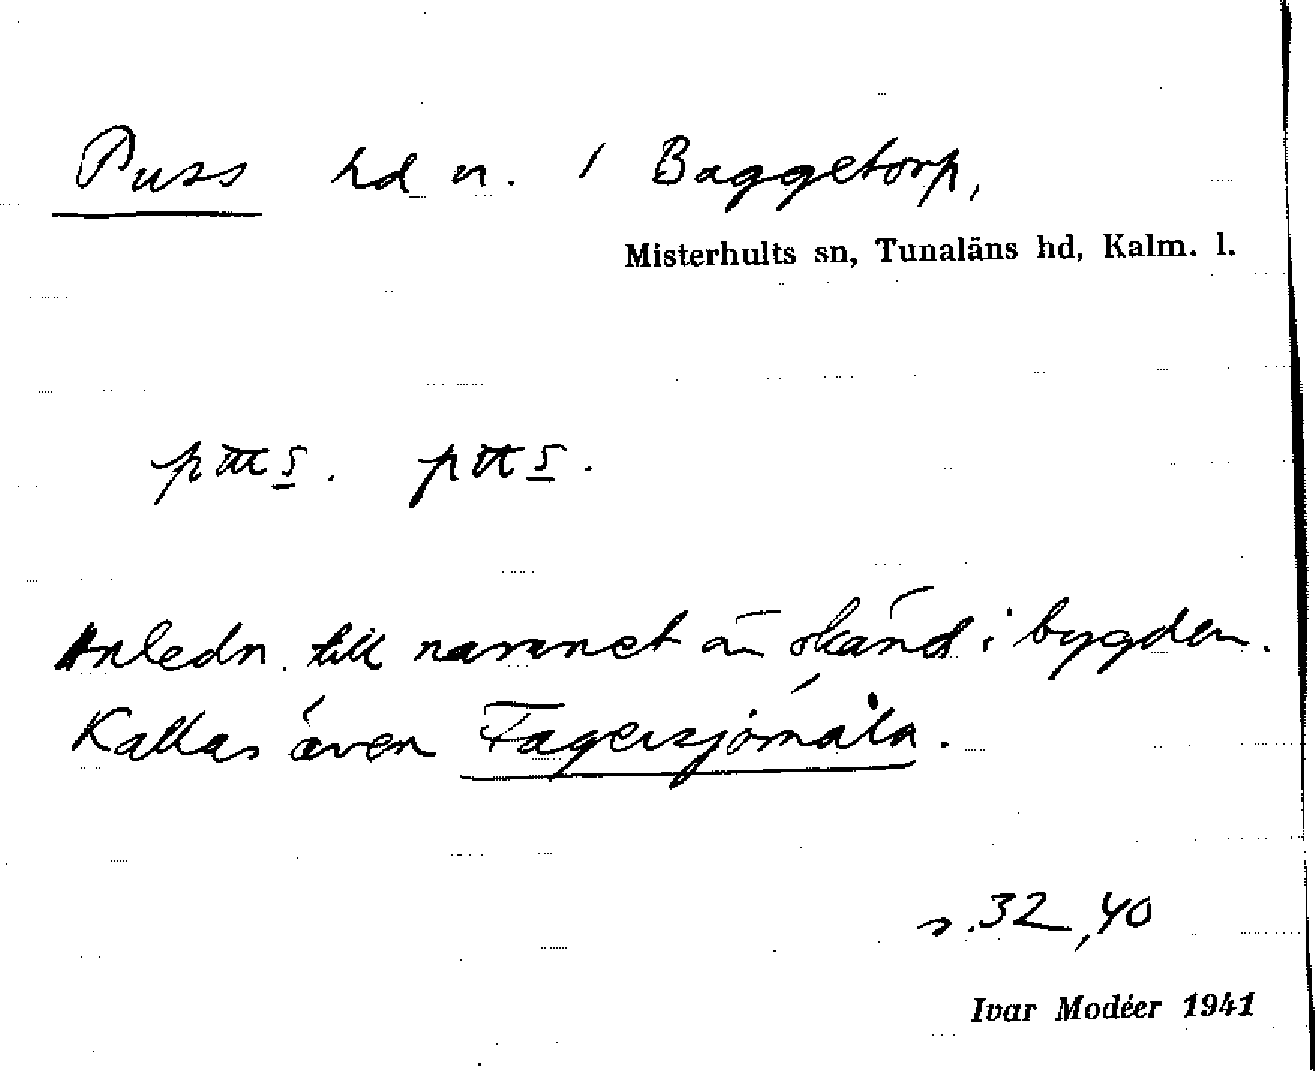 Puss hd n. / Baggetorp,
Misterhults sn, Tunaläns hd, Kalm. l.
Anledn. till namnet är okänd i bygden.
Kallas även Fagersjömåla.
s. 32, 40
Ivar Modéer 1941